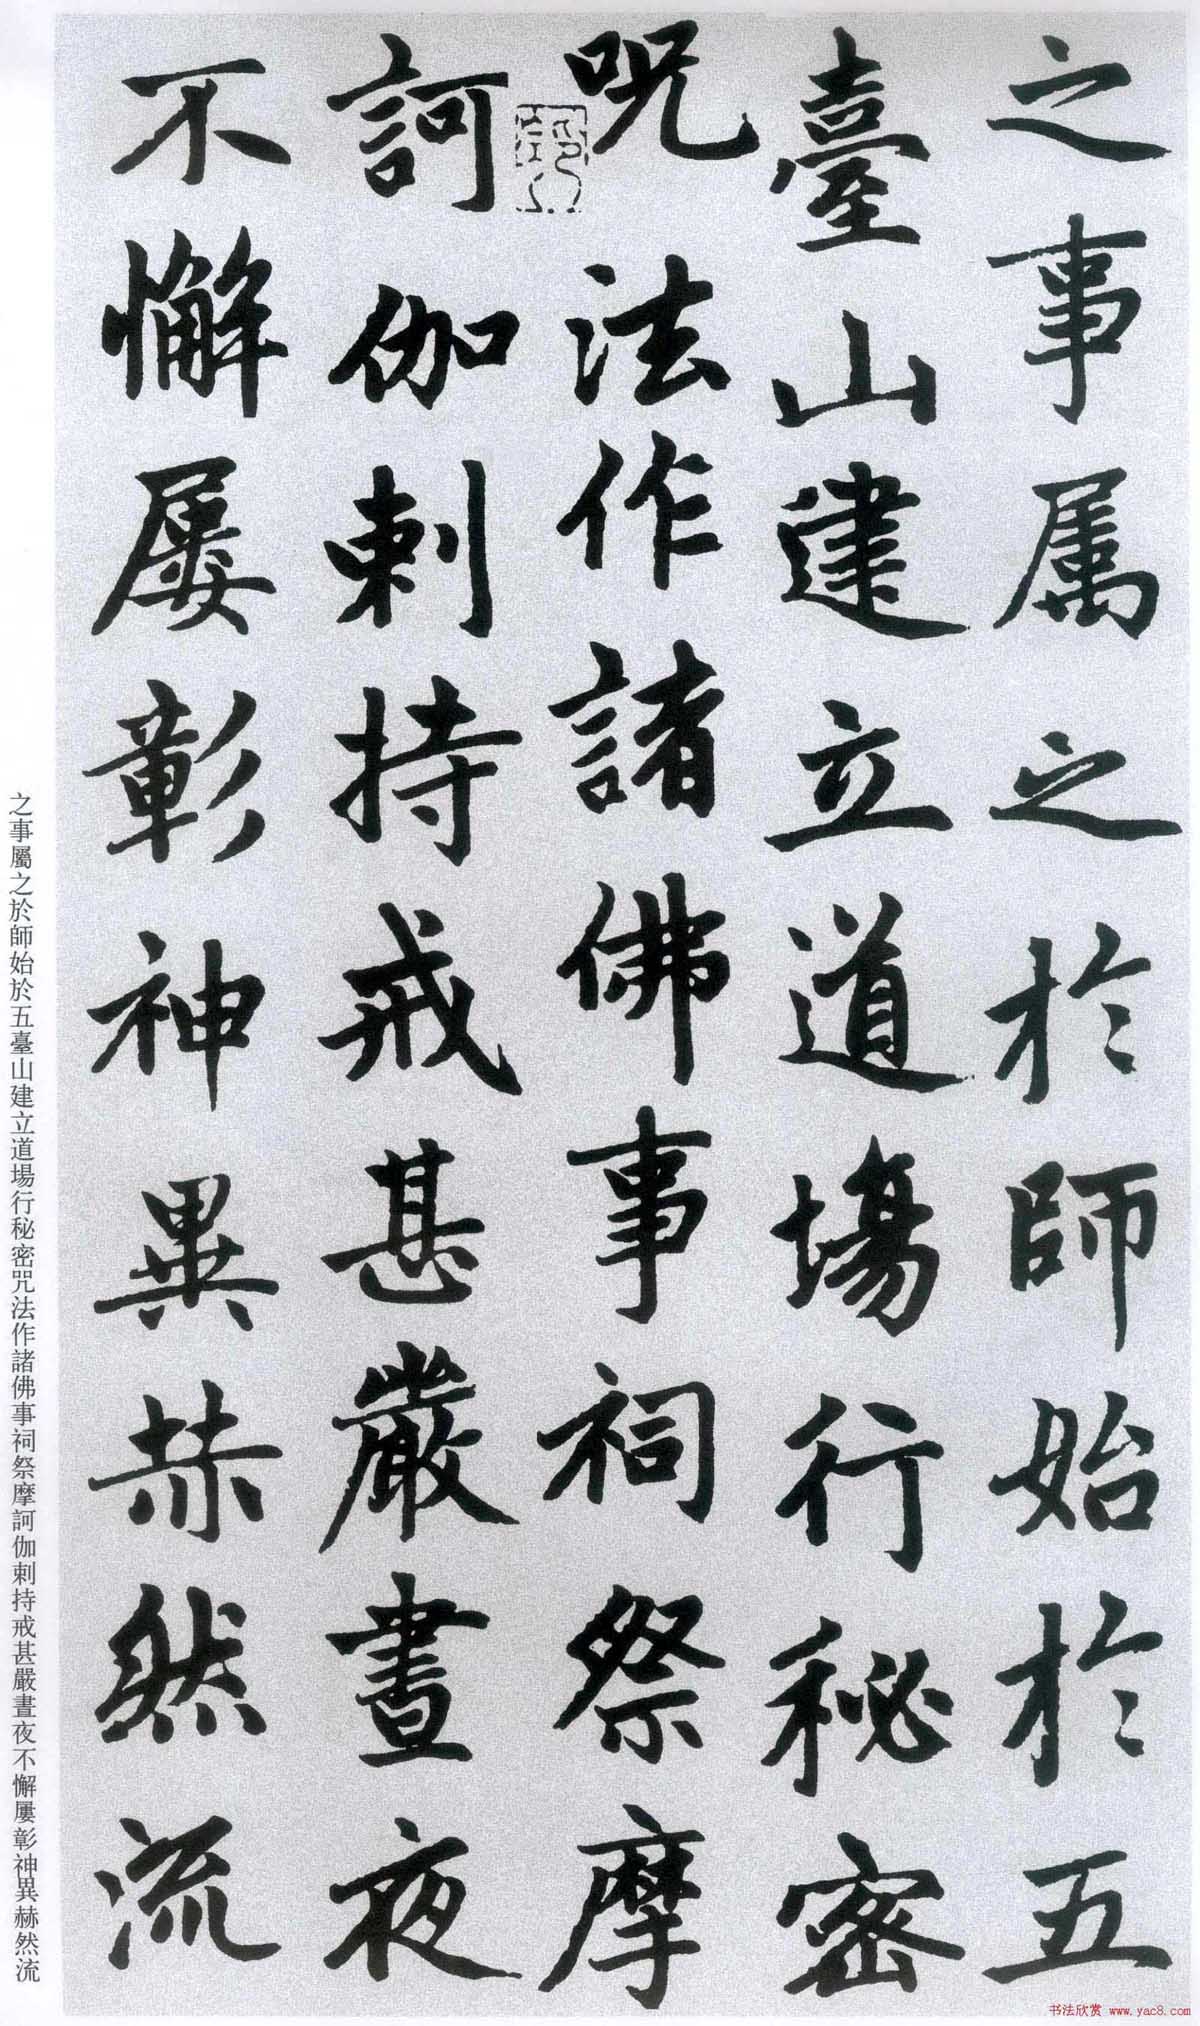 之事属之於師始於五
臺山建立道場行秘密
呪法作諸佛事祠祭摩
訶伽剌持戒甚嚴晝夜
不懈屢彰神異赫然流
之事屬之於師始於五臺山建立道場行秘密咒法作諸佛事祠祭摩訶伽剌持戒甚嚴晝夜不懈屢彰神異赫然流
书法欣赏 www.yac8.com